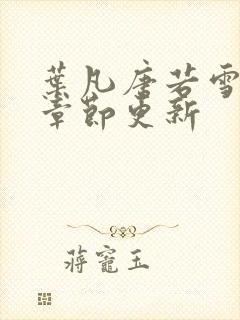 葉凡唐若雪
章節更新
蔣寵玉